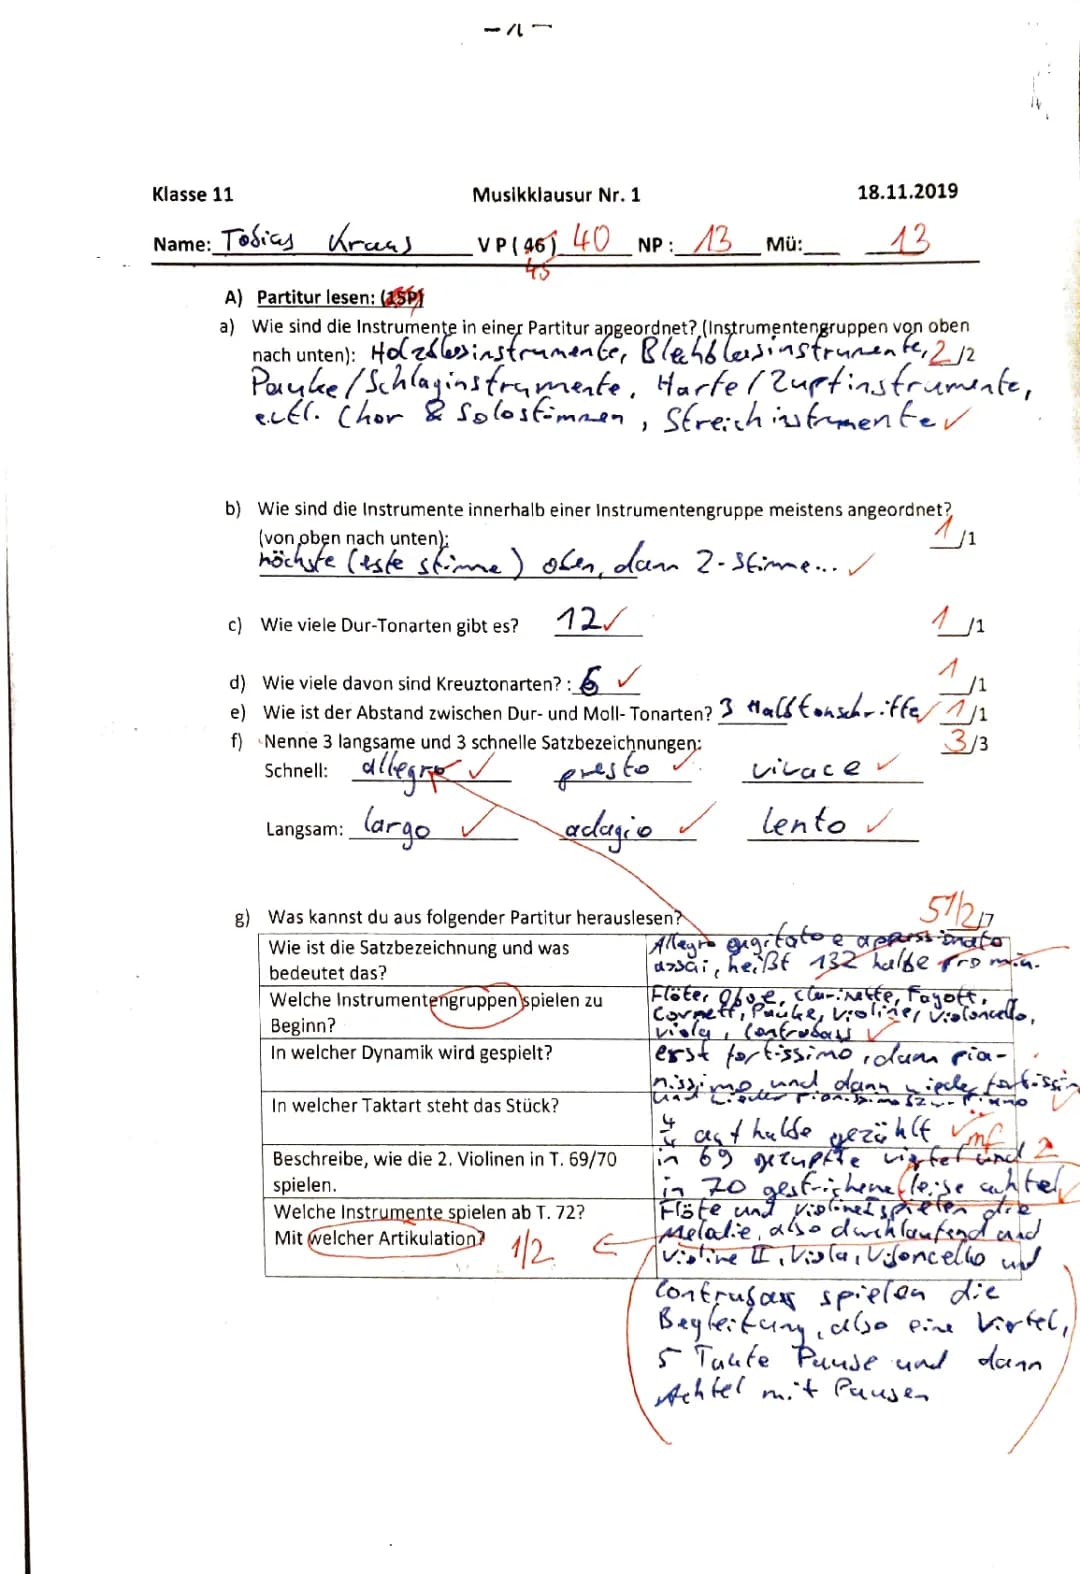 -1-
Klasse 11 Musikklausur Nr. 1 18.11.2019
Name: Tobias Kraus VP (46) 40 NP: 13 Mü: 13
45
A) Partitur lesen: (15P)
a) Wie sind die Instrumente in einer Partitur angeordnet? (Instrumentengruppen von oben
nach unten): Holzblasinstrumente, Blechblasinstrumente, 2/2
Pauke/Schlaginstrumente, Harfe/Zupfinstrumente,
evtl. Chor & Solostimmen, Streichinstrumente ✓
b) Wie sind die Instrumente innerhalb einer Instrumentengruppe meistens angeordnet?
(von oben nach unten): 1/1
höchste (erste stimme) oben, dann 2-Stimme... ✓
c) Wie viele Dur-Tonarten gibt es? 12 ✓ 1/1
d) Wie viele davon sind Kreuztonarten? : 6 ✓ 1/1
e) Wie ist der Abstand zwischen Dur- und Moll- Tonarten? 3 Halbtonschritte ✓ 1/1
f) Nenne 3 langsame und 3 schnelle Satzbezeichnungen: 3/3
Schnell: allegro ✓ presto ✓ vivace ✓
Langsam: largo ✓ adagio ✓ lento ✓
g) Was kannst du aus folgender Partitur herauslesen? 5 1/2 /7
Wie ist die Satzbezeichnung und was
bedeutet das?
Allegro agitato e appassionato
assai, heißt 132 halbe pro min.
Welche Instrumentengruppen spielen zu
Beginn?
Flöter, Oboe, Clarinette, Fagott,
Cornett, Pauke, Violine, Violoncello,
Viola, Contrabass ✓
In welcher Dynamik wird gespielt?
erst fortissimo, dann pia-
nissimo und dann wieder fortissimo
und wieder pianissimo
In welcher Taktart steht das Stück?
4/4 auf halbe gezählt ✓ mf
Beschreibe, wie die 2. Violinen in T. 69/70
spielen.
in 69 gezupfte viertel und 2
in 70 gestrichene leise achtel ✓
Welche Instrumente spielen ab T. 72?
Mit welcher Artikulation? 1/2
Flöte und Violine I spielen die
Melodie, also durchlaufend und
Violine II, Viola, Violoncello und
Contrabass spielen die
Begleitung, also eine Viertel,
5 Takte Pause und dann
Achtel mit Pausen